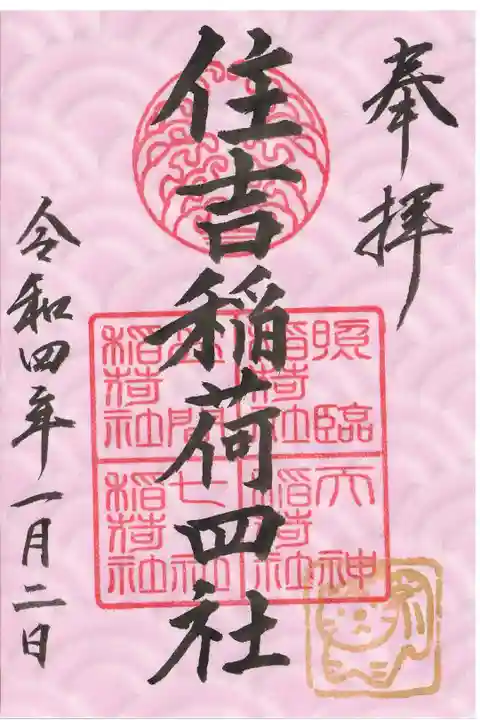 奉拝
住吉稲荷四社
照臨稲荷社
天神稲荷社
七社稲荷社
稲荷社
令和四年一月二日